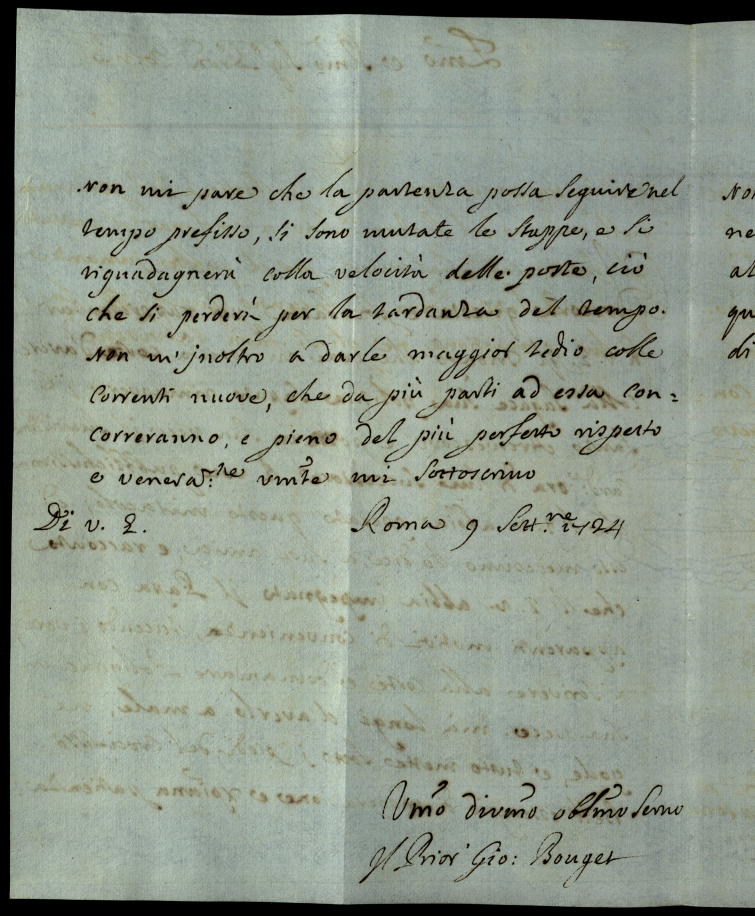 non mi pare che la partenza possa seguire nel
tempo prefisso, si sono mutate le stuppe, e si
riguadagnerà colla velocità delle poste, ciò
che si perderà per la tardanza del tempo.
non m'inoltro a darle maggior tedio colle
correnti nuove, che da più parti ad essa con=
correranno, e pieno del più perfetto rispetto
e venera:ne umte mi sottoscrivo
Di v. E. Roma 9 Sett.re 1724
Umo divmo obbmo Servo
Il Prior Gio: Bouget